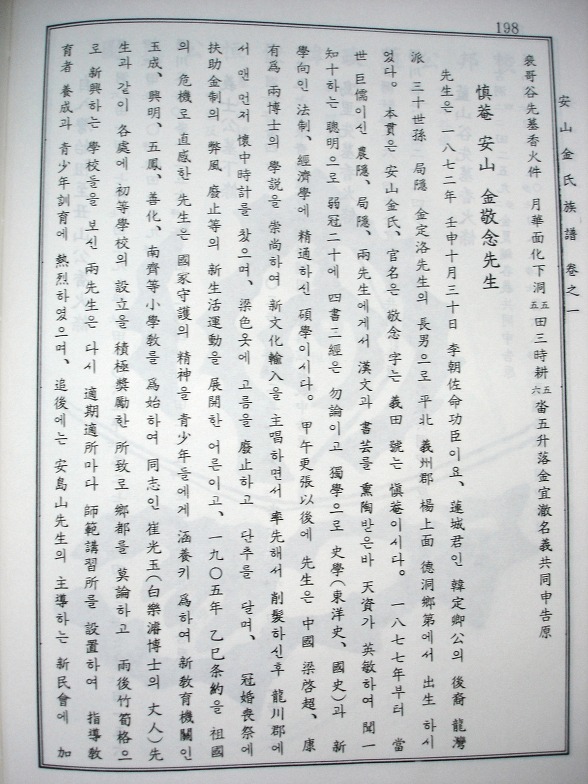 198
安山金氏族譜 卷之一
裵哥谷先墓香火件 月華面化下洞五五田三時耕五六畓五升落金宜澈名義共同申告原
愼菴 安山 金敬念先生
先生은 一八七二年 壬申十月三十日 李朝佐命功臣이요、蓮城君인 韓定卿公의 後裔 龍灣
派 三十世孫 局隱 金定洛先生의 長男으로 平北 義州郡 楊上面 德洞鄕第에서 出生 하시
었다。本貫은 安山金氏、官名은 敬念 字는 義田 號는 愼菴이시다。 一八七七年부터 當
世 巨儒이신 農隱、局隱、兩先生에게서 漢文과 書芸를 熏陶받은바 天資가 英敏하여 聞一
知十하는 聰明으로 弱冠二十에 四書三經은 勿論이고 獨學으로 史學(東洋史、國史)과 新
學向인 法制、經濟學에 精通하신 碩學이시다。甲午更張以後에 先生은 中國 梁啓超、康
有爲 兩博士의 學説을 崇尚하여 新文化輸入을 主唱하면서 率先해서 削髮하신후 龍川郡에
서 맨 먼저 懷中時計를 찼으며、梁色옷에 고름을 廢止하고 단추를 달며、 冠婚喪祭에
扶助金制의 弊風 廢止等의 新生活運動을 展開한 어른이고、一九〇五年 乙巳条約을 祖國
의 危機로 直感한 先生은 國家守護의 精神을 青少年들에게 涵養키 爲하여 新敎育機關인
玉成、興明、五鳳、善化、南齊等小學敎를 爲始하여 同志인 崔光玉(白樂濬博士의 丈人)先
生과 같이 各處에 初等學校의 設立을 積極奬勵한 所致로 鄕都를 莫論하고 雨後竹筍格으
로 新興하는 學校들을 보신 兩先生은 다시 適期適所마다 師範講習所를 設置하여 指導敎
育者 養成과 青少年訓育에 熱烈하였으며、追後에는 安島山先生의 主導하는 新民會에 加